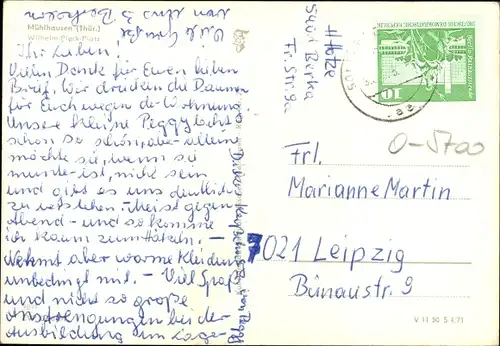 Mühlhausen (Thür.)
Wilhelm-Pieck-Platz
Ihr Lieben!
Vielen Dank für Euren lieben
Brief. Wir drücken die Daumen
für Euch wegen der Wohnung.
Unsere kleine Peggy lacht
schon so schön, aber allein
möchte sie, wenn sie
munter ist, nicht sein
und gibt es uns deutlich
zu verstehen. Meist gegen
Abend - und so komme
ich kaum zum Häkeln. -
Nehmt aber warme Kleidung
unbedingt mit. - Viel Spaß
und nicht so große
Anstrengungen bei der
Ausbildung im Lager
Viele Grüße
von uns 3
H. Hotze
5401 Berka
Fr. Str. 9a
DEUTSCHE DEMOKRATISCHE REPUBLIK
10
0-5700
Frl.
Marianne Martin
7021 Leipzig
Bünaustr. 9
V 11 50 S 4/71